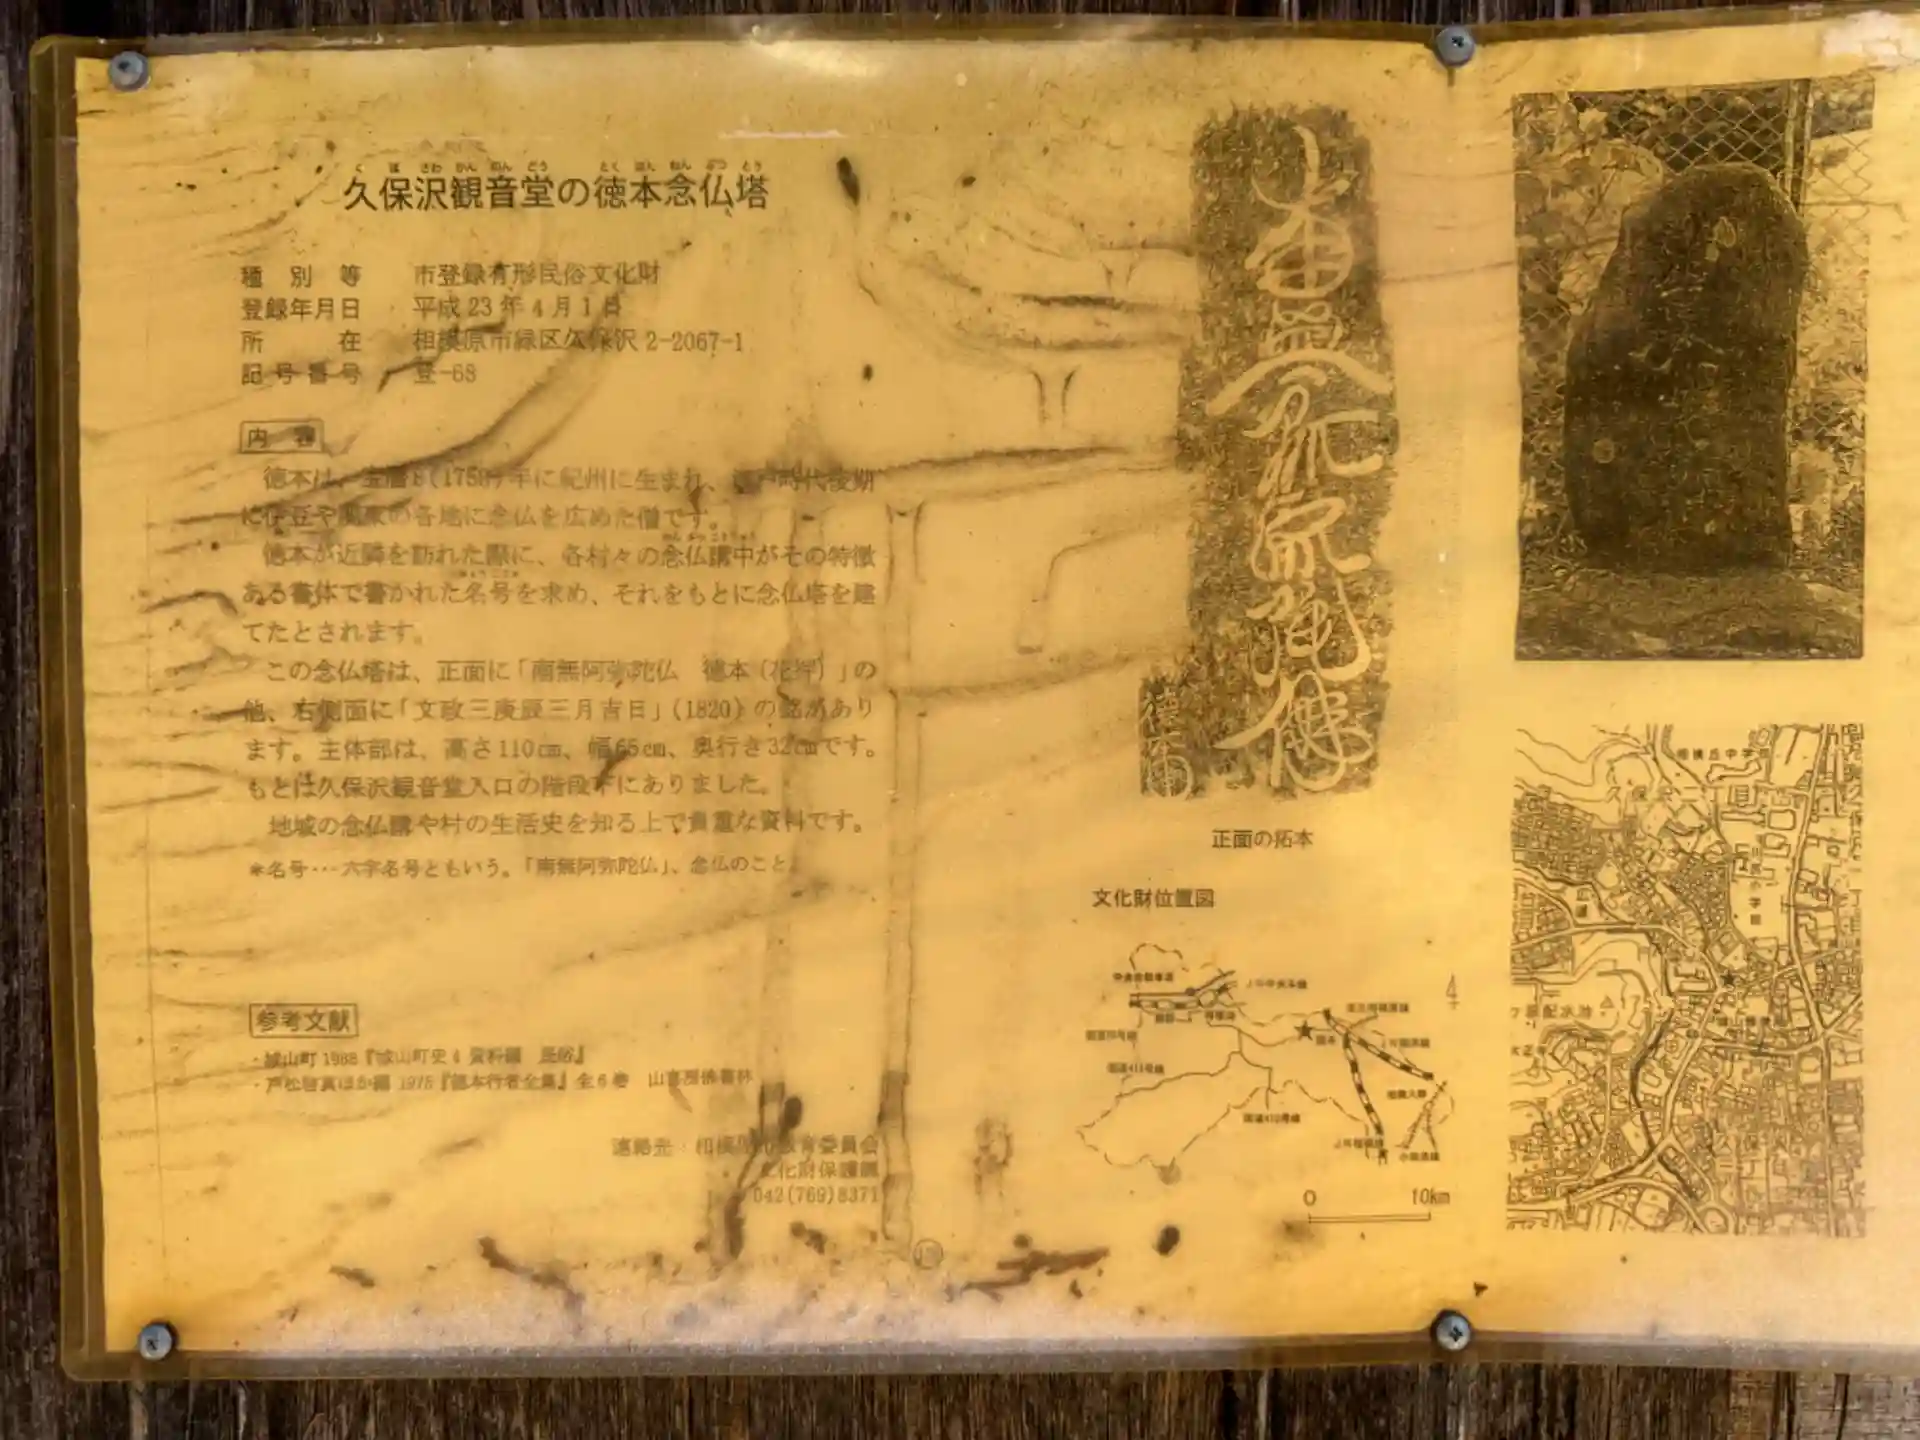 久保沢観音堂の徳本念仏塔
く ぼ さわ かん のん どう とく ほん ねん ぶつ とう
種別等 市登録有形民俗文化財
登録年月日 平成23年4月1日
所在 相模原市緑区久保沢2-2067-1
記号番号 登-68
内容
徳本は、宝暦8(1758)年に紀州に生まれ、江戸時代後期
に伊豆や関東の各地に念仏を広めた僧です。
徳本が近隣を訪れた際に、各村々の念仏講中がその特徴
ある書体で書かれた名号を求め、それをもとに念仏塔を建
てたとされます。
この念仏塔は、正面に「南無阿弥陀仏 徳本(花押)」の
他、右側面に「文政三庚辰三月吉日」(1820)の銘があり
ます。主体部は、高さ110cm、幅65cm、奥行き32cmです。
もとは久保沢観音堂入口の階段下にありました。
地域の念仏講や村の生活史を知る上で貴重な資料です。
*名号…六字名号ともいう。「南無阿弥陀仏」、念仏のこと。
参考文献
・城山町1988『城山町史4 資料編 民俗』
・戸松啓真ほか編 1975『徳本行者全集』全6巻 山喜房佛書林
連絡先 相模原市教育委員会
文化財保護課
042(769)8371
南無阿弥陀佛
徳本
正面の拓本
文化財位置図
中央自動車道
JR中央本線
国道413号線
国道412号線
橋本
JR横浜線
相模大野
JR相模線
小田急線
0 10km
相模丘中学校